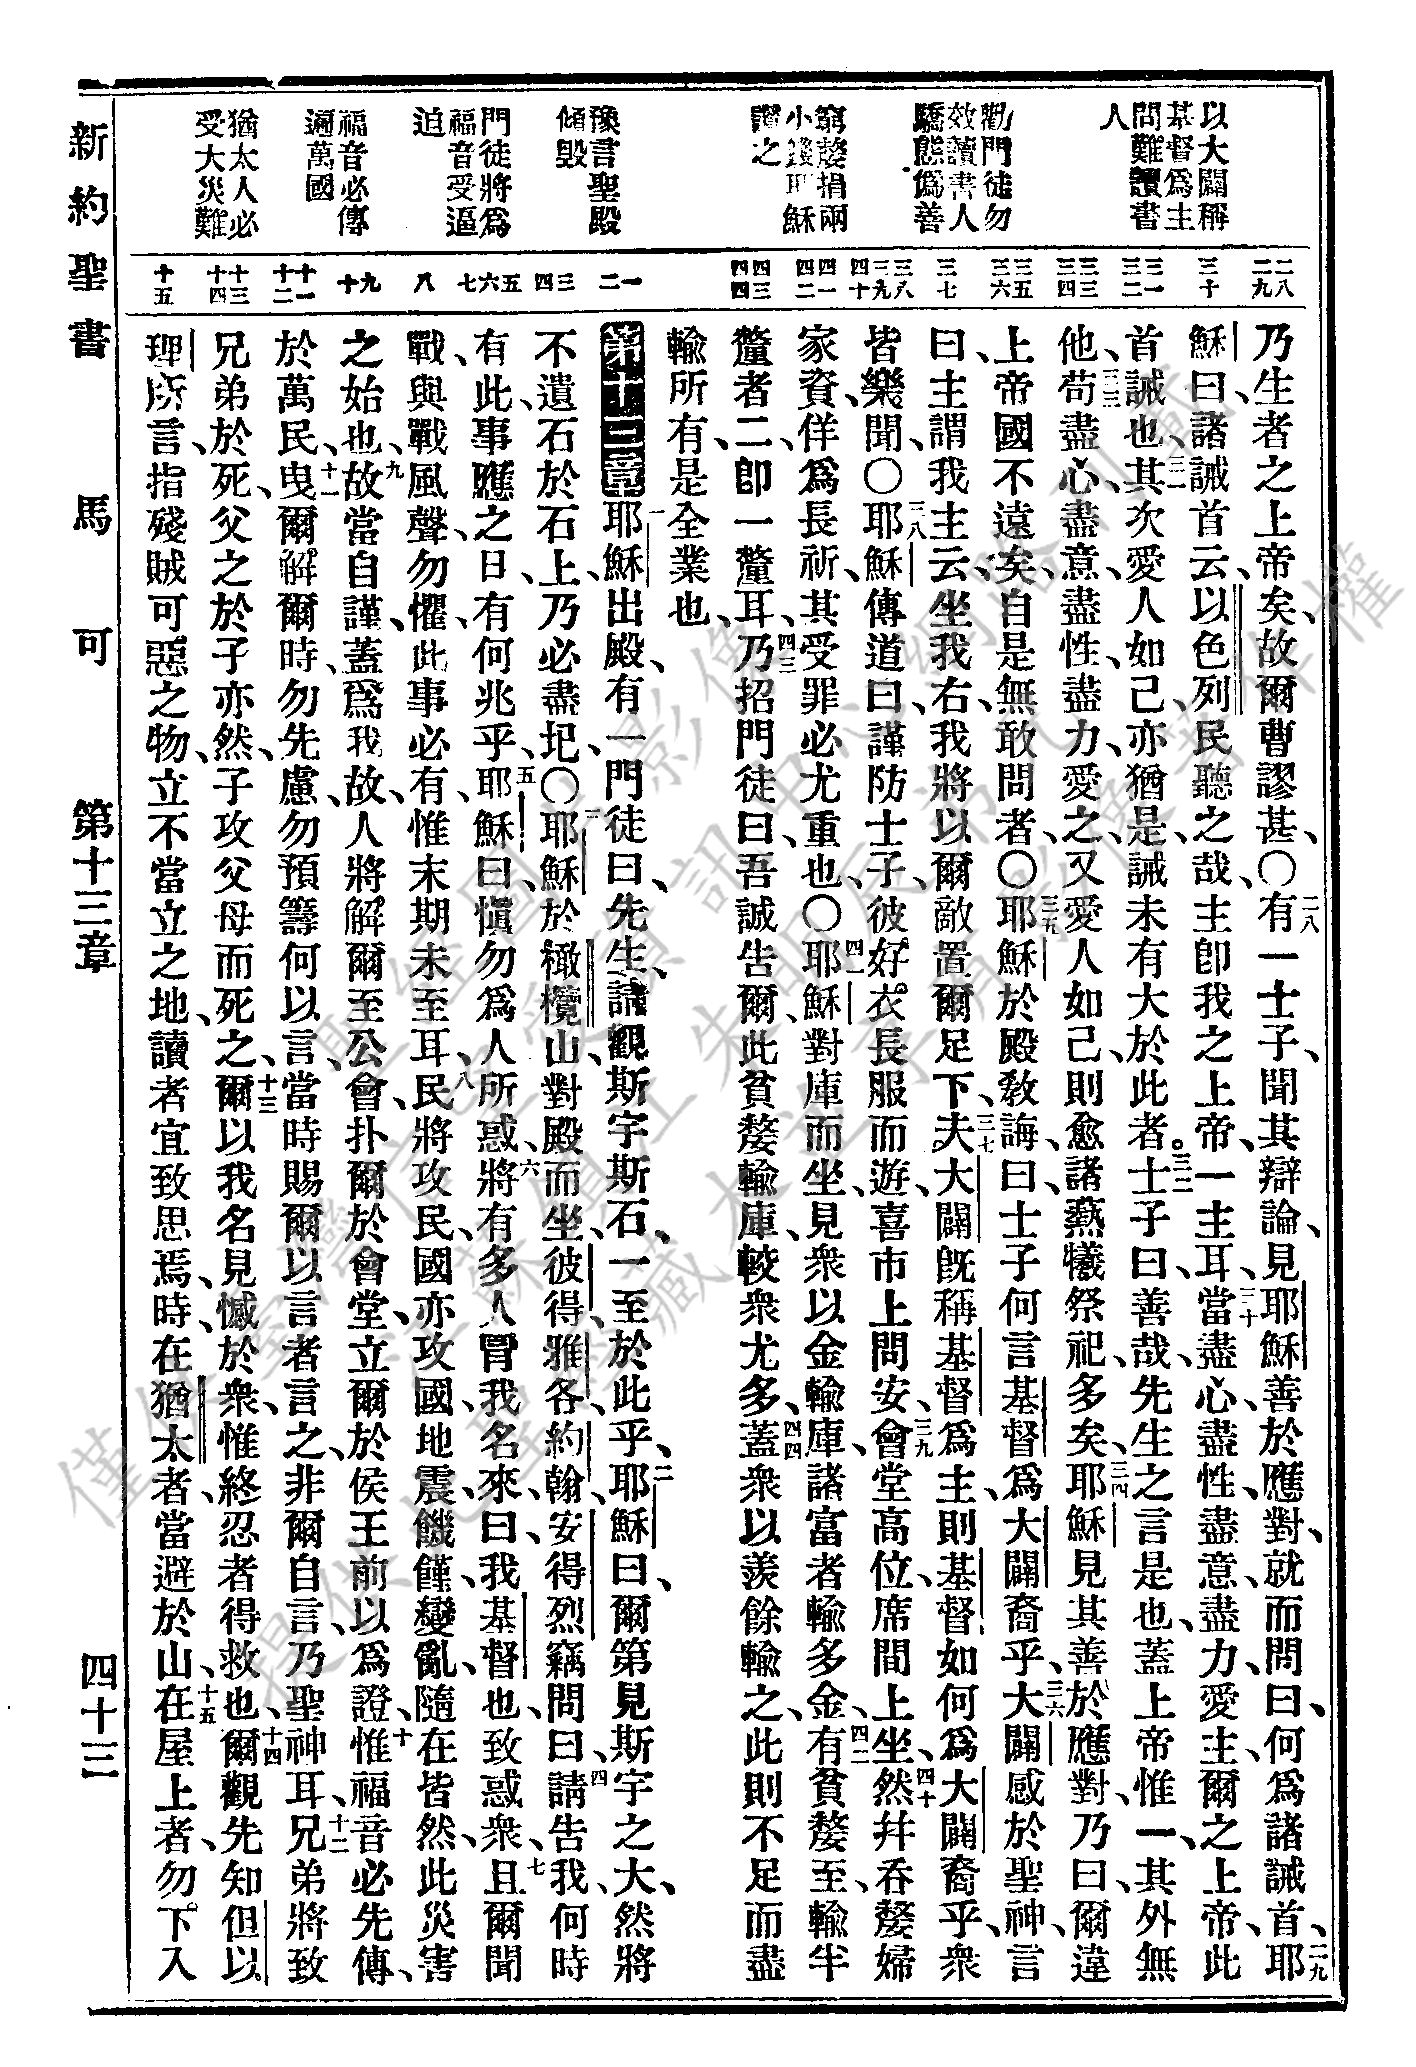 以大闢稱
基督爲主
問難讀書
人
勸門徒勿
效讀書人
驕態僞善
窮嫠捐兩
小錢耶穌
讚之
豫言聖殿
傾毀
門徒將爲
福音受逼
迫
福音必傳
遍萬國
猶太人必
受大災難
二八
二九
三十
三一
三二
三三
三四
三五
三六
三七
三八
三九
四十
四一
四二
四三
四四
一
二
三
四
五
六
七
八
九
十
十一
十二
十三
十四
十五
乃生者之上帝矣、故爾曹謬甚、〇二八有一士子、聞其辯論、見耶穌善於應對、就而問曰、何爲諸誡首、二九耶
穌曰、諸誡首云、以色列民聽之哉、主卽我之上帝、一主耳、三十當盡心盡性盡意盡力、愛主爾之上帝、此
首誡也、三一其次愛人如己、亦猶是、誡未有大於此者。三二士子曰、善哉、先生之言是也、蓋上帝惟一、其外無
他、三三苟盡心、盡意、盡性、盡力、愛之、又愛人如己、則愈諸燕犧祭祀多矣、三四耶穌見其善於應對、乃曰、爾違
上帝國不遠矣、自是無敢問者、〇三五耶穌於殿敎誨、曰、士子何言基督爲大闢裔乎、三六大闢感於聖神、言
曰、主謂我主云、坐我右、我將以爾敵置爾足下、三七夫大闢旣稱基督爲主、則基督如何爲大闢裔乎、衆
皆樂聞、〇三八耶穌傳道曰、謹防士子、彼好衣長服而遊、喜市上問安、三九會堂高位、席間上坐、四十然幷吞嫠婦
家資、佯爲長祈、其受罪必尤重也、〇四一耶穌對庫而坐、見衆以金輸庫、諸富者輸多金、四二有貧嫠至、輸半
釐者二、卽一釐耳、四三乃招門徒曰、吾誠告爾、此貧嫠輸庫、較衆尤多、四四蓋衆以羨餘輸之、此則不足而盡
輸所有、是全業也、
第十三章一耶穌出殿、有一門徒曰、先生、請觀斯宇斯石、一至於此乎、二耶穌曰、爾第見斯宇之大、然將
不遺石於石上、乃必盡圮、〇三耶穌於橄欖山、對殿而坐、彼得、雅各、約翰、安得烈竊問曰、四請告我、何時
有此、事應之日、有何兆乎、五耶穌曰、愼勿爲人所惑、六將有多人冒我名來、曰、我基督也、致惑衆、七且爾聞
戰、與戰風聲、勿懼、此事必有、惟末期未至耳、八民將攻民、國亦攻國、地震、饑饉、變亂、隨在皆然、此災害
之始也、九故當自謹、蓋爲我故、人將解爾至公會、扑爾於會堂、立爾於侯王前、以爲證、十惟福音必先傳、
於萬民、十一曳爾解爾時、勿先慮、勿預籌何以言、當時賜爾以言者言之、非爾自言、乃聖神耳、十二兄弟將致
兄弟於死、父之於子亦然、子攻父母而死之、十三爾以我名見憾於衆、惟終忍者得救也、十四爾觀先知但以
理所言、指殘賊可惡之物、立不當立之地、讀者宜致思焉、時在猶太者、當避於山、十五在屋上者、勿下、入
新約聖書
馬可
第十三章
四十三